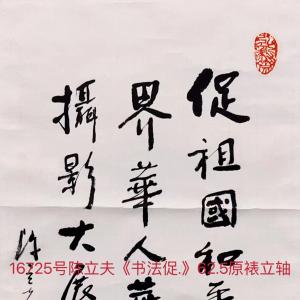 促祖國和
界華人華
攝影大展
16225号陆立夫《书法促.》62.5原裱立轴